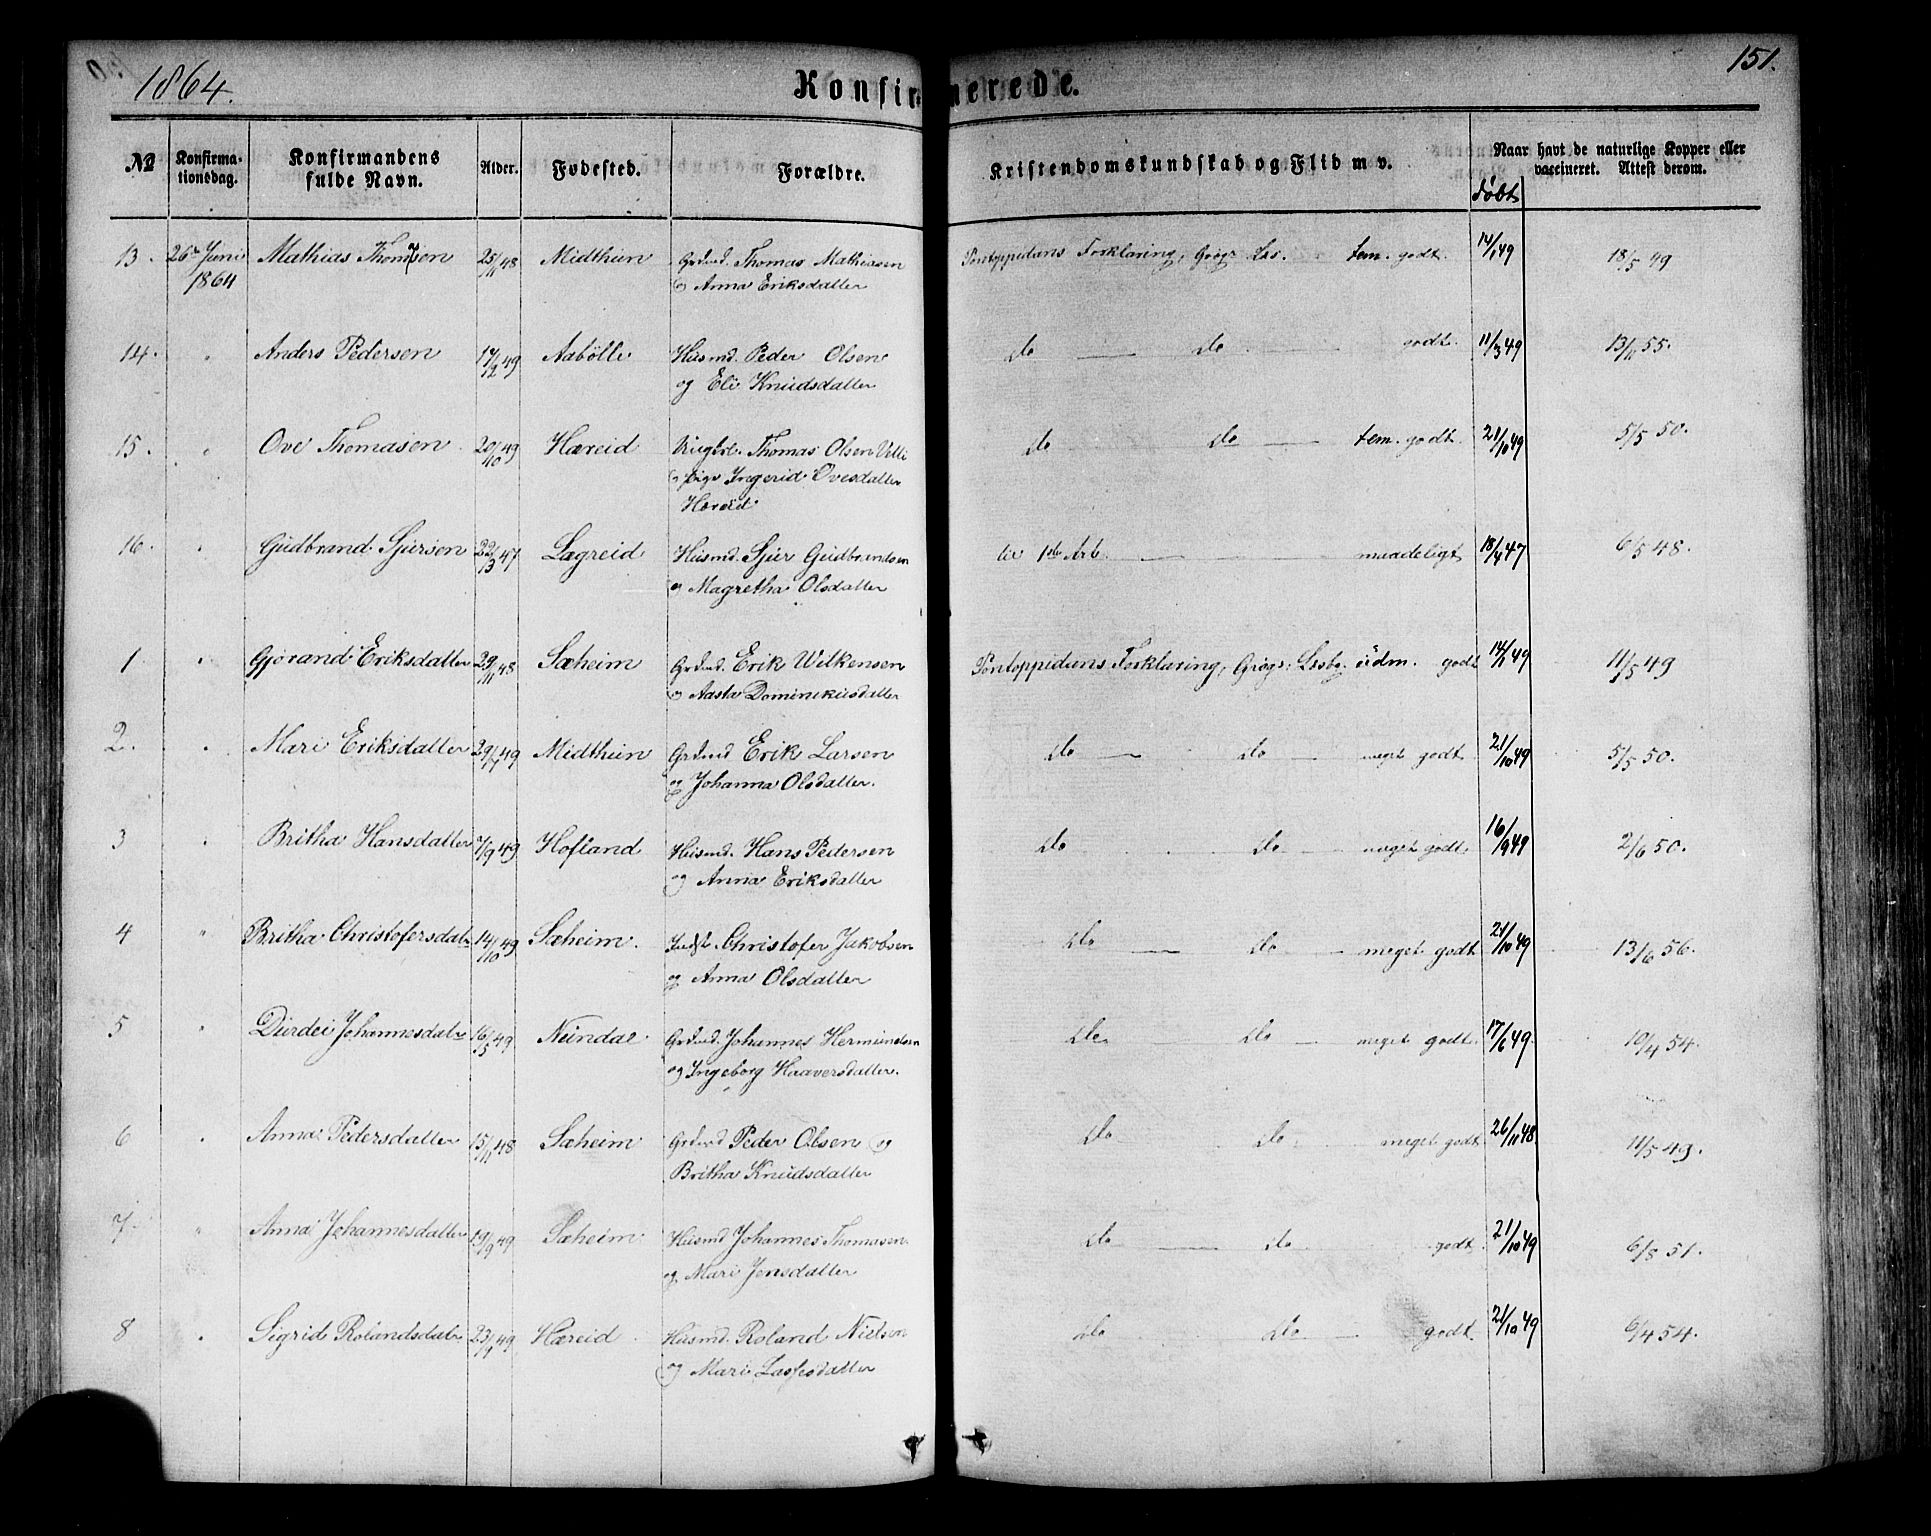 1864.
Konfirmerede.
151.
No
Konfirmationsdag.
Konfirmandens fulde Navn.
Alder.
Fødested.
Forældre.
Kristendomskundskab og Flid m v.
døbt
Naar havt de naturlige Kopper eller vaccineret. Attest derom.
13. 26de Juni Mathias Thomasen 25/11 48 Midthun Grdmd. Thomas Mathiasen Pontoppidans Forklaring, Grøgs Les. tem. godt. 14/1 49 18/5 49
1864 og Anna Eriksdatter
14. " Anders Pedersen 17/2 49 Aabölle Husmd. Peder Olsen do do godt. 11/3 49 13/11 55.
og Eli Knudsdatter
15. " Ove Thomasen 20/10 49 Hæreid Ungkl. Thomas Olsen Vetti do do tem. godt. 21/10 49 5/5 50.
og Pige Ingerid Ovesdatter
Hæreid
16. " Gudbrand Sjursen 22/3 47 Lægreid Husmd. Sjur Gudbrandsen maadeligt 18/4 47 6/5 48.
og Magretha Olsdatter
1 " Gjørand Eriksdatter 29/11 48 Sæheim Grdmd. Erik Wilkensen Pontoppidans Forklaring, Grøgs: Lesbg. udm. godt 14/1 49 11/5 49
og Aasta Dominikusdatter
2. " Mari Eriksdatter 29/7 49 Midthun Grdmd Erik Larsen do do meget godt 21/10 49 5/5 50.
og Johanna Olsdatter.
3 " Britha Hansdatter 7/9 49 Hofland Husmd. Hans Pedersen do do meget godt. 16/9 49 2/6 50.
og Anna Eriksdatter
4 " Britha Christofersdatr 14/10 49 Sæheim. Indst. Christofer Jakobsen do do meget godt 21/10 49 13/6 56.
og Anna Olsdatter
5 " Durdei Johannesdatr 16/5 49 Nundal Grdmd. Johannes Hermundsen do do meget godt. 17/6 49. 10/4 54.
og Ingeborg Haaversdatter.
6 " Anna Pedersdatter 15/11 48 Sæheim Grdmd Peder Olsen og do do meget godt 26/11 48. 11/5 49.
Britha Knudsdatter
7. " Anna Johannesdatter 19/9 49 Sæheim Husmd Johannes Thomasen. do do godt. 21/10 49 6/8 51.
og Mari Jensdatter
8 " Sigrid Rolandsdatr 23/9 49 Hæreid. Husmd. Roland Nielsen do do godt 21/10 49 6/4 54.
og Mari Lassesdatter